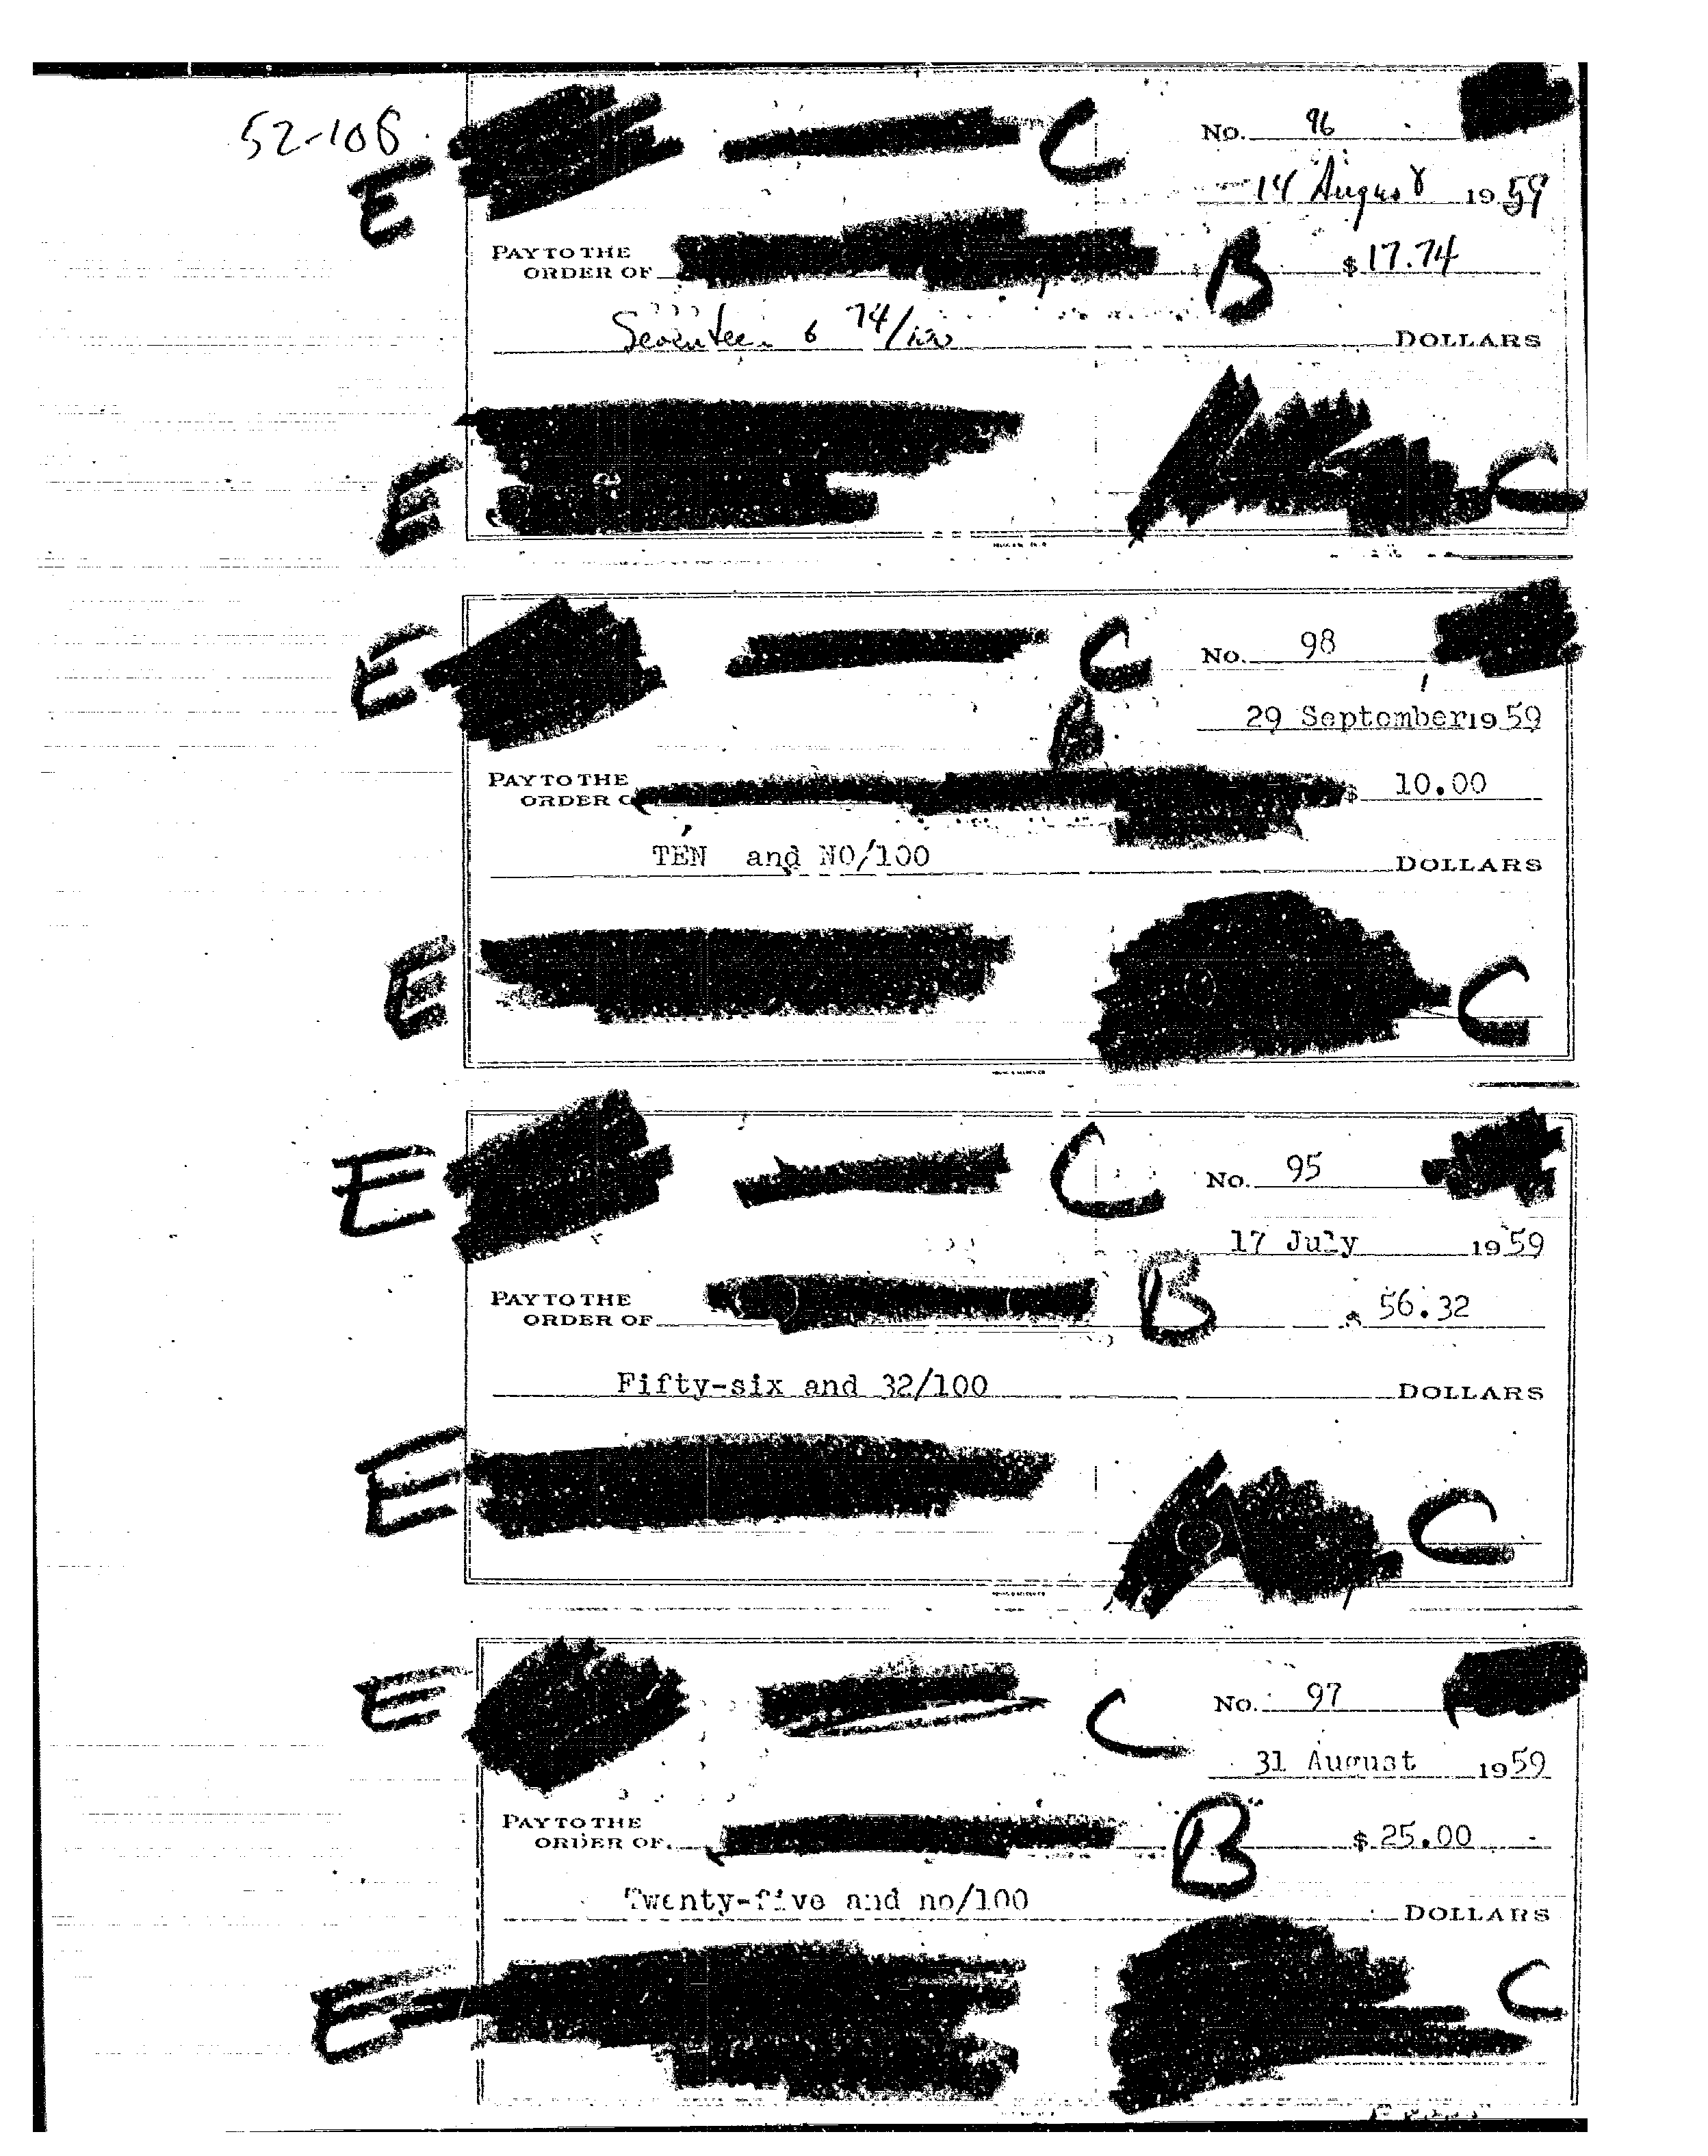 52-108
E C No. 96
14 August 1959
PAY TO THE
ORDER OF B $ 17.74
Seventeen & 74/100 DOLLARS
E C
E C No. 98
29 September 1959
B
PAY TO THE
ORDER O $ 10.00
TEN and NO/100 DOLLARS
E C
E C No. 95
17 July 1959
PAY TO THE
ORDER OF B $ 56.32
Fifty-six and 32/100 DOLLARS
E C
E C No. 97
31 August 1959
PAY TO THE
ORDER OF B $ 25.00
Twenty-five and no/100 DOLLARS
E C